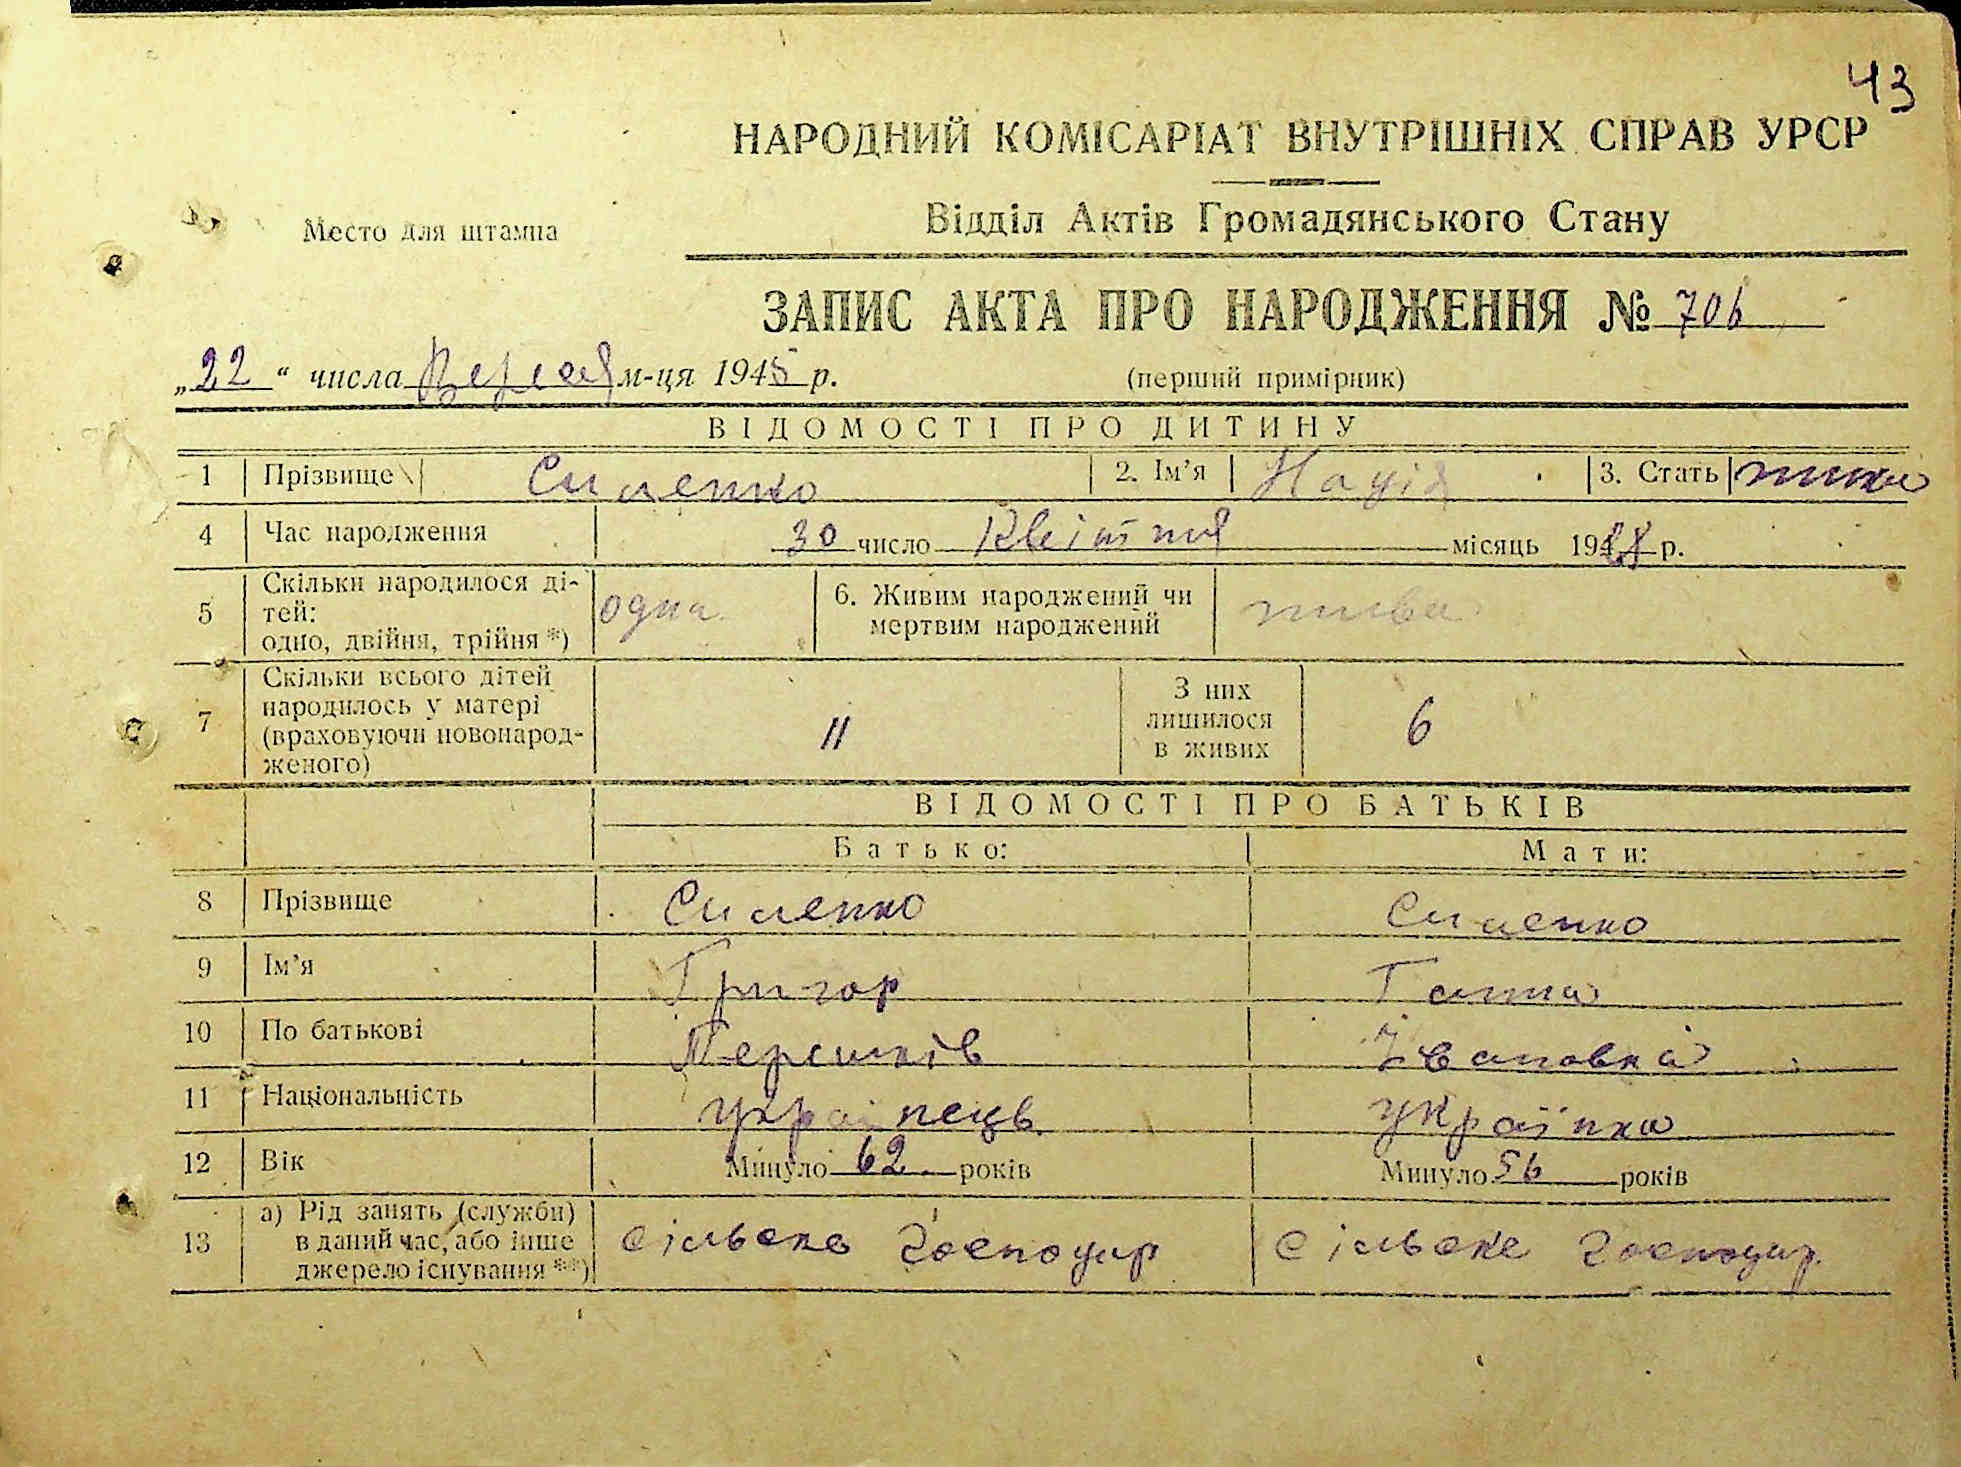 43
НАРОДНИЙ КОМІСАРІАТ ВНУТРІШНІХ СПРАВ УРСР
Место для штампа
Відділ Актів Громадянського Стану
ЗАПИС АКТА ПРО НАРОДЖЕННЯ № 706
„22“ числа м-ця 1945 р.
(перший примірник)
ВІДОМОСТІ ПРО ДИТИНУ
1 Прізвище Силенко 2. Ім’я Надія 3. Стать
4 Час народження 30 число Квітня місяць 19 р.
5 Скільки народилося дітей: одно, двійня, трійня *) одна 6. Живим народжений чи мертвим народжений жива
7 Скільки всього дітей народилось у матері (враховуючи новонародженого) 11 З них лишилося в живих 6
ВІДОМОСТІ ПРО БАТЬКІВ
Батько: Мати:
8 Прізвище Силенко Силенко
9 Ім’я Григор Ганна
10 По батькові Івановна
11 Національність українець українка
12 Вік Минуло 62 років Минуло 56 років
13 а) Рід занять (служби) в даний час, або інше джерело існування **) сільске господар сільске господар.